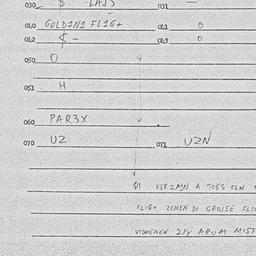 030 $ -LAJS 031 —
040 GOLDINI FLIG+ 041 0
042 $- 043 0
050 0
051 H
060 PAR3X
070 UZ 071 UZN
KERZAJN A TOES CLN
FLIG+ ZENEN DI GROISE FLI
VIDMENEN ZIX ARUM MIST